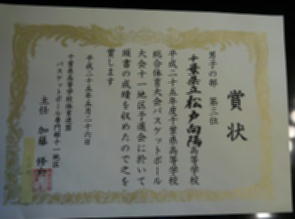 賞状
男子の部　第三位
千葉県立松戸向陽高等学校
平成二十五年度千葉県高等学校
総合体育大会バスケットボール
大会十一地区予選会に於いて
頭書の成績を収めたので之を
賞します
平成二十五年五月二十六日
千葉県高等学校体育連盟
バスケットボール専門部十一地区
主任　加藤